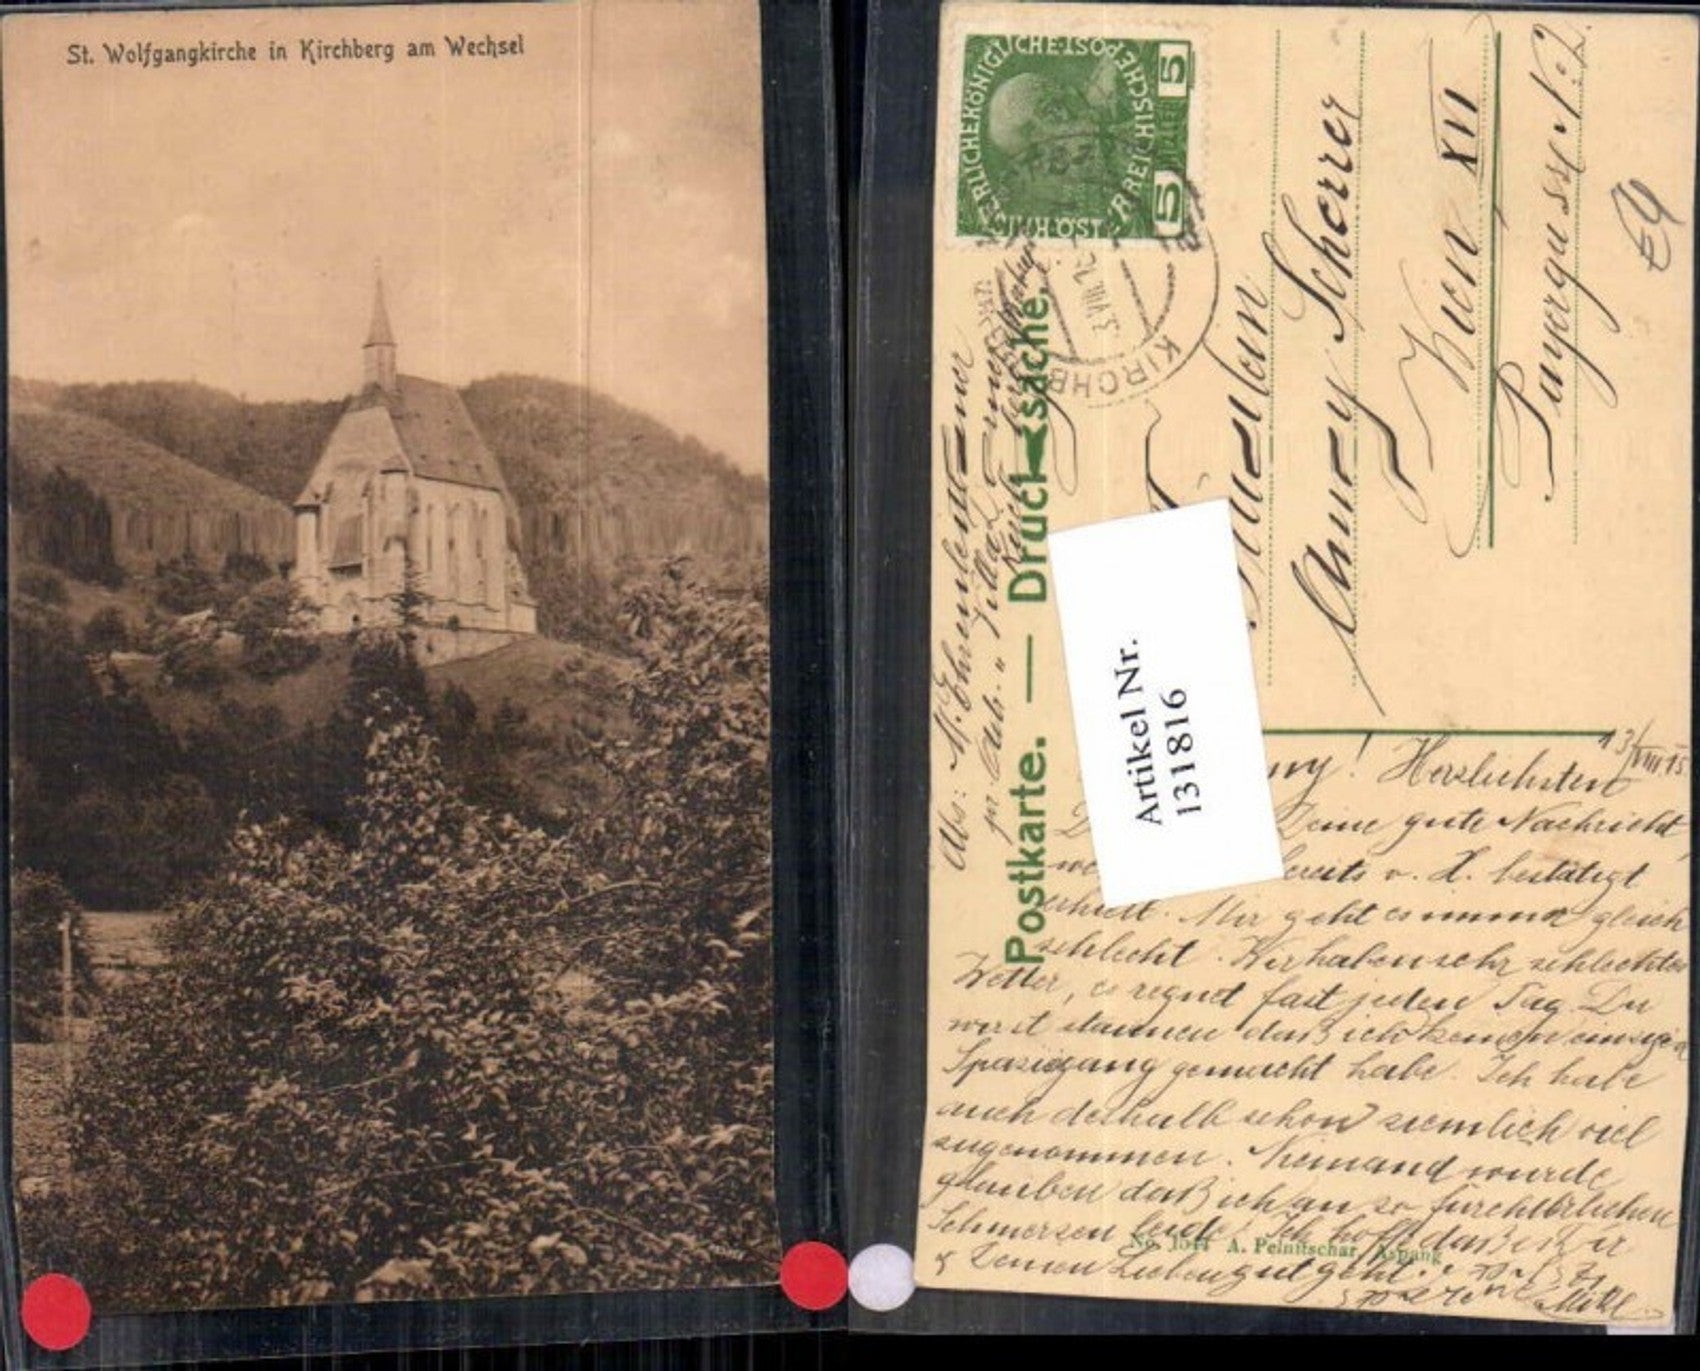 St. Wolfgangkirche in Kirchberg am Wechsel
KAISERLICHE KÖNIGLICHE ÖSTERREICHISCHE POST
5 5
KIRCHB
3.VIII.
Postkarte. — Drucksache.
Abs: M. Ehrenlettner
pr. Adr. "Villa
Fräulein
Anney Scherrer
Wien XVI
Payergasse N: 2.
Artikel Nr.
131816
13/VIII 15
ny! Herzlichsten
Deine gute Nachricht,
bereits v. H. bestätigt
erhielt. Mir geht es immer gleich
schlecht. Wir haben sehr schlechtes
Wetter, es regnet fast jeden Tag. Du
wirst staunen daß ich keinen einzigen
Spaziergang gemacht habe. Ich habe
auch deshalb schon ziemlich viel
zugenommen. Niemand würde
glauben daß ich an so fürchterlichen
Schmerzen leide! Ich hoffe daß es Dir
& Deinen Lieben gut geht.
No. 1544 A. Pelnitschar, Aspang